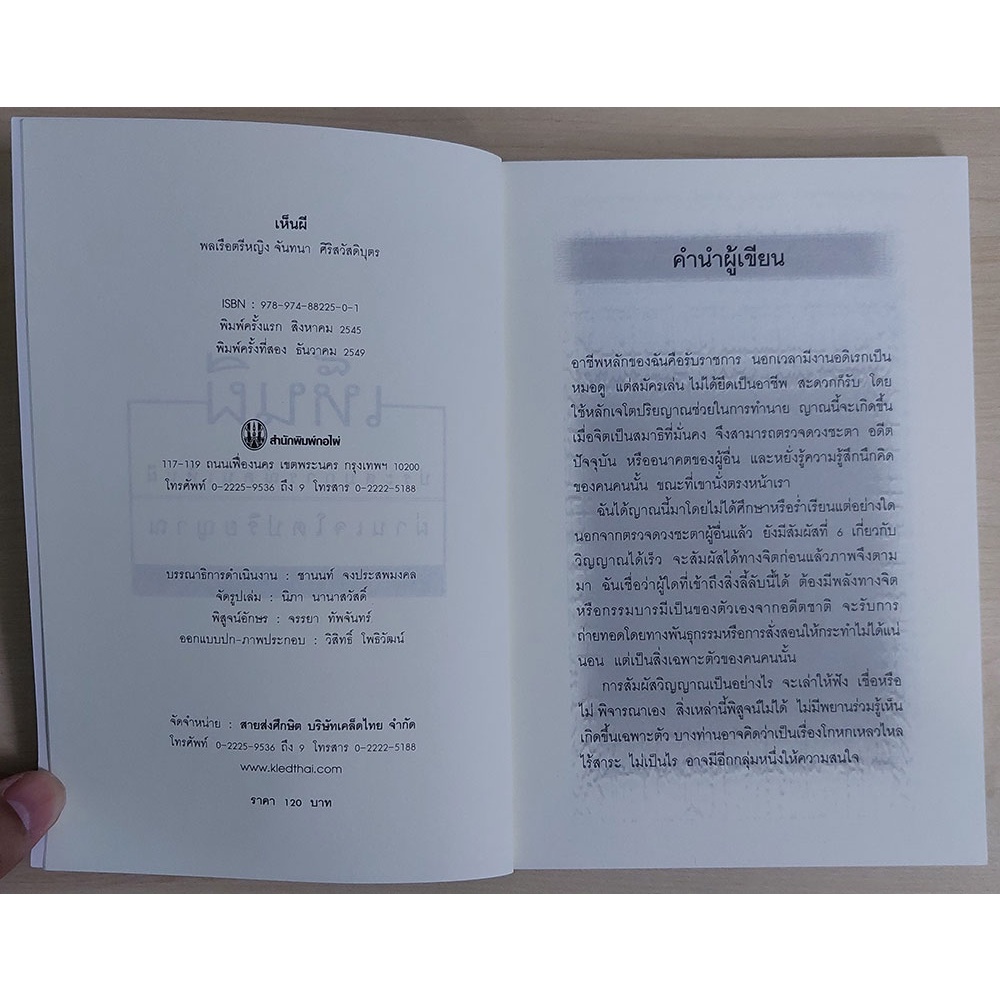 เห็นผี
พลเรือตรีหญิง จันทนา ศิริสวัสดิบุตร
ISBN : 978-974-88225-0-1
พิมพ์ครั้งแรก สิงหาคม 2545
พิมพ์ครั้งที่สอง ธันวาคม 2549
สำนักพิมพ์กอไผ่
117-119 ถนนเฟื่องนคร เขตพระนคร กรุงเทพฯ 10200
โทรศัพท์ 0-2225-9536 ถึง 9 โทรสาร 0-2222-5188
บรรณาธิการดำเนินงาน : ชานนท์ จงประสพมงคล
จัดรูปเล่ม : นิภา นานาสวัสดิ์
พิสูจน์อักษร : จรรยา ทัพจันทร์
ออกแบบปก-ภาพประกอบ : วิสิทธิ์ โพธิวัฒน์
จัดจำหน่าย : สายส่งศึกษิต บริษัทเคล็ดไทย จำกัด
โทรศัพท์ 0-2225-9536 ถึง 9 โทรสาร 0-2222-5188
www.kledthai.com
ราคา 120 บาท
คำนำผู้เขียน
อาชีพหลักของฉันคือรับราชการ นอกเวลามีงานอดิเรกเป็น
หมอดู แต่สมัครเล่น ไม่ได้ยึดเป็นอาชีพ สะดวกก็รับ โดย
ใช้หลักเจโตปริยญาณช่วยในการทำนาย ญาณนี้จะเกิดขึ้น
เมื่อจิตเป็นสมาธิที่มั่นคง จึงสามารถตรวจดวงชะตา อดีต
ปัจจุบัน หรืออนาคตของผู้อื่น และหยั่งรู้ความรู้สึกนึกคิด
ของคนคนนั้น ขณะที่เขานั่งตรงหน้าเรา
ฉันได้ญาณนี้มาโดยไม่ได้ศึกษาหรือร่ำเรียนแต่อย่างใด
นอกจากตรวจดวงชะตาผู้อื่นแล้ว ยังมีสัมผัสที่ 6 เกี่ยวกับ
วิญญาณได้เร็ว จะสัมผัสได้ทางจิตก่อนแล้วภาพจึงตาม
มา ฉันเชื่อว่าผู้ใดที่เข้าถึงสิ่งลี้ลับนี้ได้ ต้องมีพลังทางจิต
หรือกรรมบารมีเป็นของตัวเองจากอดีตชาติ จะรับการ
ถ่ายทอดโดยทางพันธุกรรมหรือการสั่งสอนให้กระทำไม่ได้แน่
นอน แต่เป็นสิ่งเฉพาะตัวของคนคนนั้น
การสัมผัสวิญญาณเป็นอย่างไร จะเล่าให้ฟัง เชื่อหรือ
ไม่ พิจารณาเอง สิ่งเหล่านี้พิสูจน์ไม่ได้ ไม่มีพยานร่วมรู้เห็น
เกิดขึ้นเฉพาะตัว บางท่านอาจคิดว่าเป็นเรื่องโกหกเหลวไหล
ไร้สาระ ไม่เป็นไร อาจมีอีกกลุ่มหนึ่งให้ความสนใจ